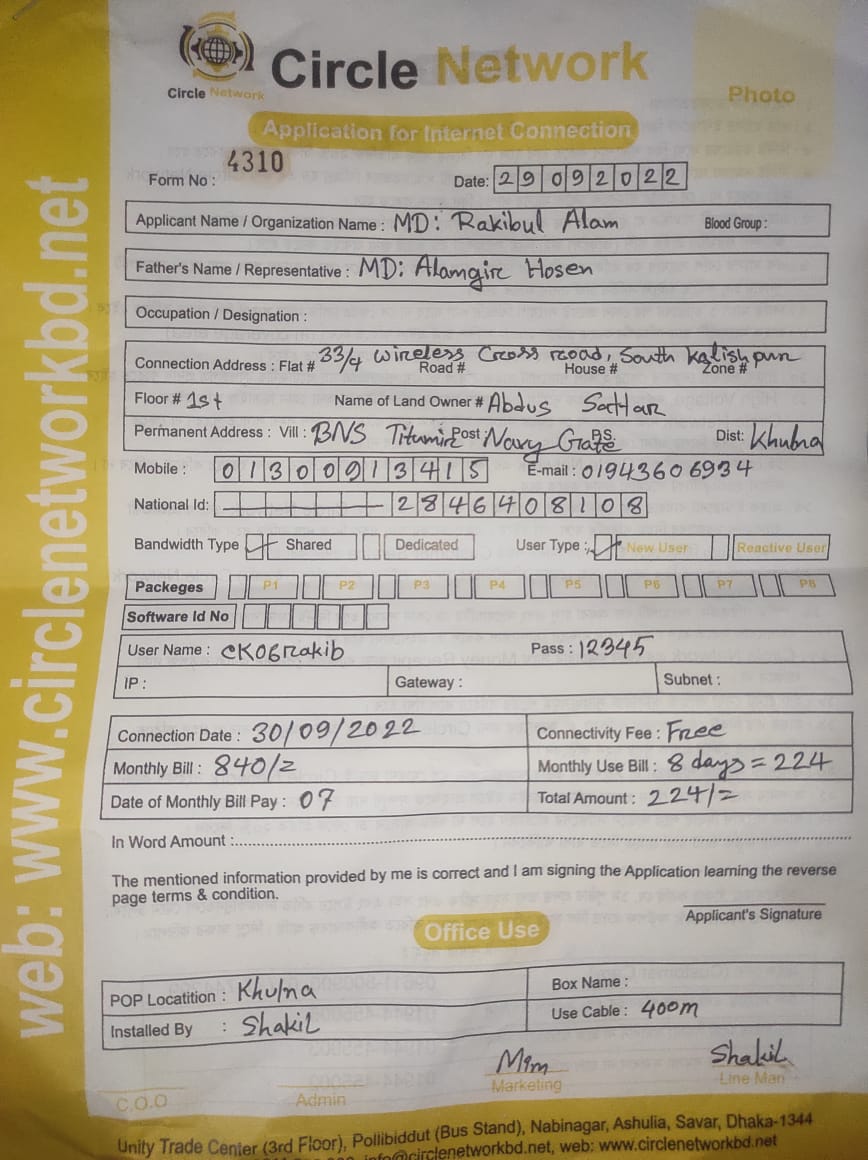 Circle Network
Circle Network
Photo
Application for Internet Connection
Form No : 4310
Date: 29092022
Applicant Name / Organization Name : MD: Rakibul Alam Blood Group :
Father's Name / Representative : MD: Alamgir Hosen
Occupation / Designation :
Connection Address : Flat # 33/4 Wireless Cross road, South Kalishpur
Road # House # Zone #
Floor # 1st Name of Land Owner # Abdus Sattar
Permanent Address : Vill : BNS Titumir Post : Navy Gate P.S. Dist: Khulna
Mobile : 01300913415 E-mail : 01943606934
National Id: 2846408108
Bandwidth Type Shared Dedicated User Type : New User Reactive User
Packeges P1 P2 P3 P4 P5 P6 P7 P8
Software Id No
User Name : CK06rakib Pass : 12345
IP : Gateway : Subnet :
Connection Date : 30/09/2022 Connectivity Fee : Free
Monthly Bill : 840/= Monthly Use Bill : 8 days = 224
Date of Monthly Bill Pay : 07 Total Amount : 224/=
In Word Amount :
The mentioned information provided by me is correct and I am signing the Application learning the reverse
page terms & condition.
Applicant's Signature
Office Use
POP Locatition : Khulna Box Name :
Installed By : Shakil Use Cable : 400m
Mim Shakil
C.O.O Admin Marketing Line Man
Unity Trade Center (3rd Floor), Pollibiddut (Bus Stand), Nabinagar, Ashulia, Savar, Dhaka-1344
info@circlenetworkbd.net, web: www.circlenetworkbd.net
web: www.circlenetworkbd.net